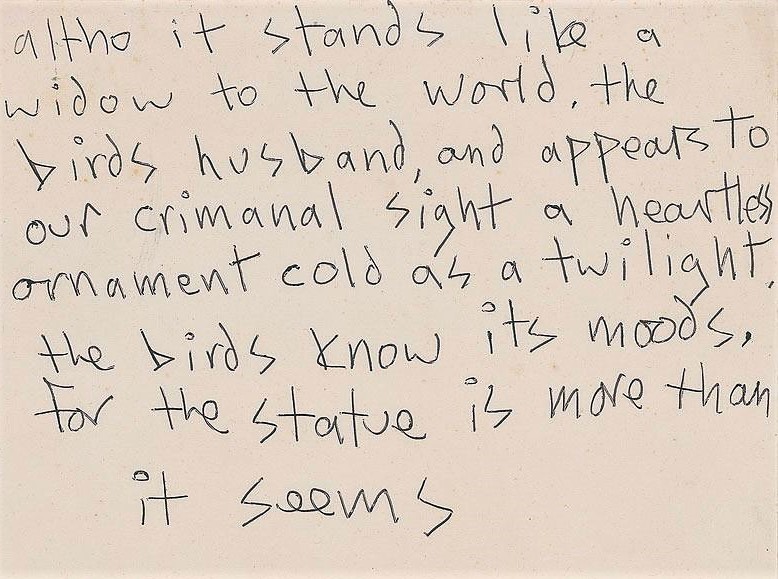 altho it stands like a
widow to the world. the
birds husband, and appears to
our crimanal sight a heartless
ornament cold as a twilight.
the birds know its moods.
for the statue is more than
it seems